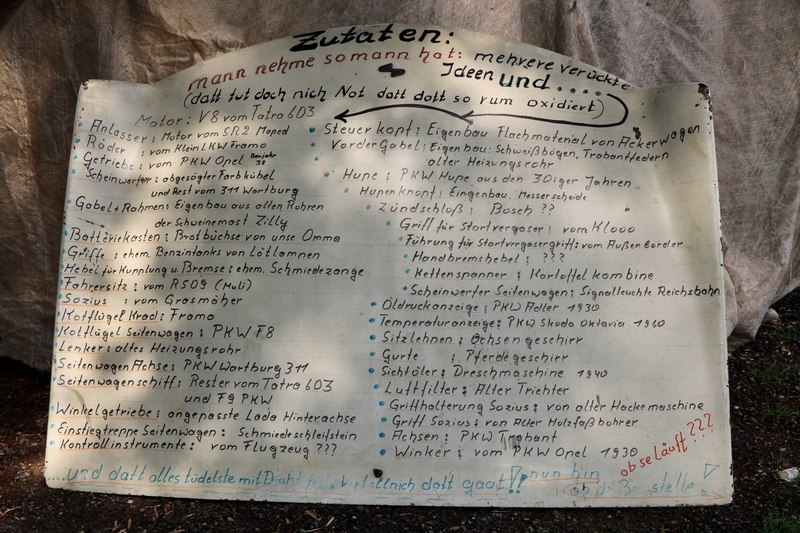 Zutaten:
mann nehme so mann hat: mehrere verückte
Ideen und.....
(datt tut doch nich Not datt dott so rum oxidiert)
Motor: V8 vom Tatra 603
Anlasser: Motor vom SR2 Moped
Räder : vom Klein LKW Framo
Getriebe: vom PKW Opel Baujahr 38
Scheinwerfer: abgesägter Farbkübel
und Rest vom 311 Wartburg
Gabel + Rahmen: Eigenbau aus alten Rohren
der Schweinemast Zilly
Batteriekasten: Brotbüchse von unse Omma
Griffe: ehem. Benzintanks von Lötlampen
Hebel für Kupplung u. Bremse: ehem. Schmiedezange
Fahrersitz: vom RS09 (Muli)
Sozius : vom Grasmäher
Kotflügel Krad: Framo
Kotflügel Seitenwagen: PKW F8
Lenker: altes Heizungsrohr
Seitenwagen Achse: PKW Wartburg 311
Seitenwagenschiff: Rester vom Tatra 603
und F9 PKW
Winkelgetriebe: angepasste Lada Hinterachse
Einstiegtreppe Seitenwagen: Schmiedeschleifstein
Kontrollinstrumente: vom Flugzeug ???
Steuerkopf: Eigenbau Flachmaterial von Ackerwagen
Vorder Gabel: Eigenbau: Schweißbögen, Trabantfedern
alter Heizungsrohr
Hupe: PKW Hupe aus den 30iger Jahren
Hupenknopf: Eingenbau. Messerscheide
Zündschloß: Bosch ??
Griff für Startvergaser: vom Klooo
Führung für Startvergasergriff: vom Außenborder
Handbremshebel: ???
Kettenspanner: Kartoffelkombine
Scheinwerfer Seitenwagen: Signalleuchte Reichsbahn
Öldruckanzeige: PKW Adler 1930
Temperaturanzeige: PKW Skoda Oktavia 1960
Sitzlehnen: Ochsengeschirr
Gurte : Pferdegeschirr
Sichtöler: Dreschmaschine 1940
Luftfilter: Alter Trichter
Griffhalterung Sozius: von alter Hackemaschine
Griff Sozius: von Alter Holzfaßbohrer
Achsen: PKW Trabant
Winker: vom PKW Opel 1930
ob se läuft???
...und datt alles tüdelste mit Draht datt gaat!! nun bin